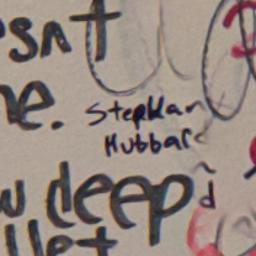 esn't
ne.
Stephan
Hubbard
w deep
llet